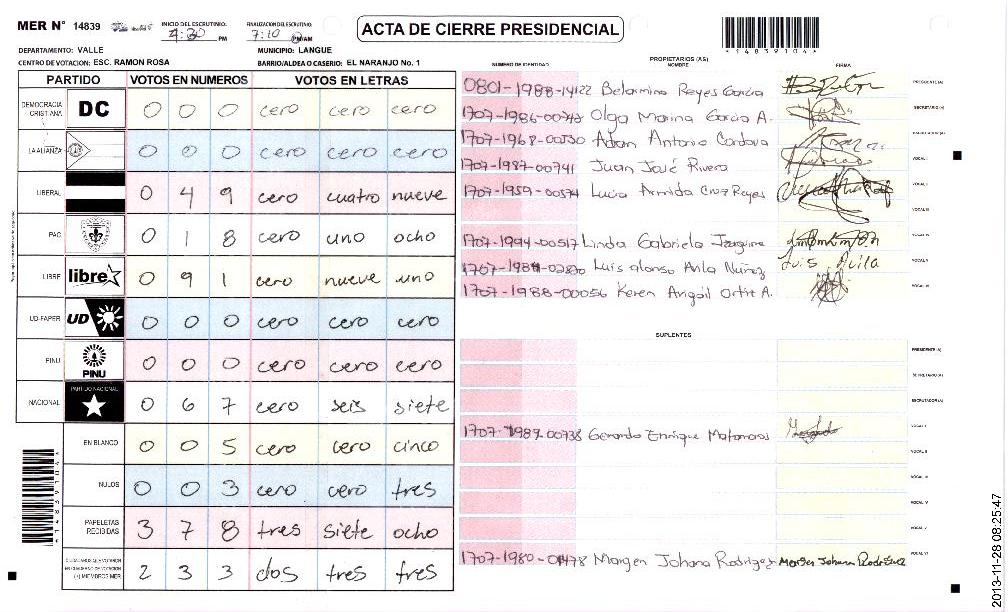 MER N° 14839 INICIO DEL ESCRUTINIO: 4:30 PM FINALIZACION DEL ESCRUTINIO: 7:10 PM/AM ACTA DE CIERRE PRESIDENCIAL
DEPARTAMENTO: VALLE MUNICIPIO: LANGUE
CENTRO DE VOTACION: ESC. RAMON ROSA BARRIO/ALDEA O CASERIO: EL NARANJO No. 1
PARTIDO VOTOS EN NUMEROS VOTOS EN LETRAS
DEMOCRACIA CRISTIANA DC 0 0 0 cero cero cero
LA ALIANZA 0 0 0 cero cero cero
LIBERAL 0 4 9 cero cuatro nueve
PAC 0 1 8 cero uno ocho
LIBRE libre 0 9 1 cero nueve uno
UD-FAPER UD 0 0 0 cero cero cero
PINU PINU 0 0 0 cero cero cero
NACIONAL PARTIDO NACIONAL 0 6 7 cero seis siete
EN BLANCO 0 0 5 cero cero cinco
NULOS 0 0 3 cero cero tres
PAPELETAS RECIBIDAS 3 7 8 tres siete ocho
2 3 3 dos tres tres
NUMERO DE IDENTIDAD PROPIETARIOS (AS) NOMBRE FIRMA
0801-1988-14122 Belarmino Reyes Garcia PRESIDENTE (A)
Olga Marina Garcia A. SECRETARIO (A)
1707-1968-00330 Adan Antonio Cordova
1707-1987-00741 Juan José Rivera VOCAL I
1707-1959-00574 Lucia Armida Cruz Reyes
VOCAL III
1707-1994-00517 Linda Gabriela
Luis alonso Avila Nuñez Luis Avila VOCAL V
1707-1988-00056 Keren Avigail Ortiz A.
SUPLENTES
PRESIDENTE (A)
SECRETARIO (A)
ESCRUTADOR (A)
1707-1987-00738 Gerardo Enrique Matamoros VOCAL I
VOCAL II
VOCAL III
VOCAL IV
VOCAL V
Johana Rodriguez Johana Rodriguez VOCAL VI
2013-11-28 08:25:47